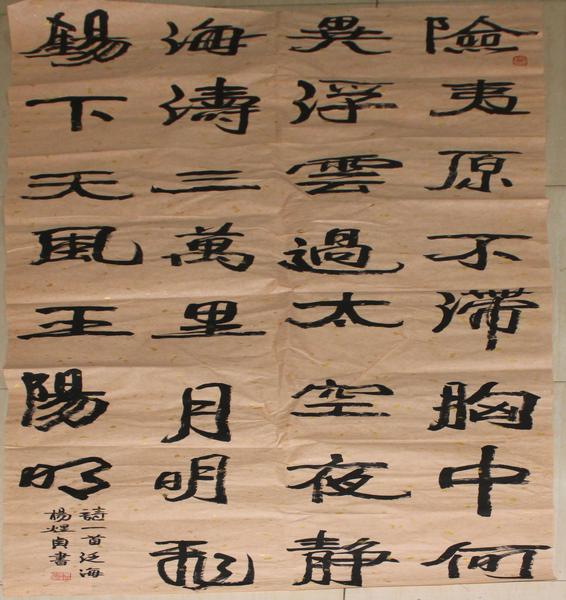 險夷原不滯胸中何
異浮雲過太空夜静
海濤三萬里月明飛
錫下天風王陽明
詩一首泛海
楊書